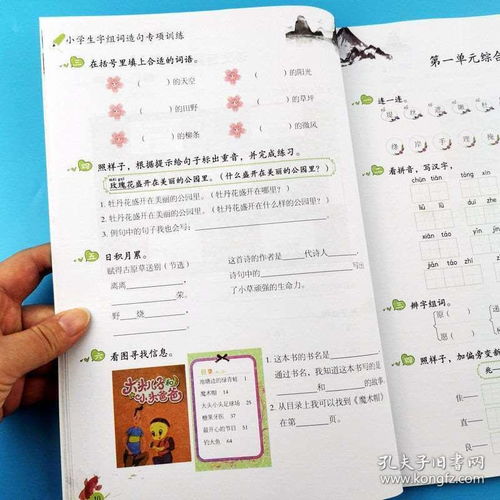 小学生字组词造句专项训练
三 在括号里填上合适的词语。
（ ）的天空 （ ）的阳光
（ ）的田野 （ ）的草坪
（ ）的柳条 （ ）的微风
四 照样子，根据提示给句子标出重音，并完成练习。
méi gui
玫瑰花盛开在美丽的公园里。（什么盛开在美丽的公园里？）
1. 牡丹花盛开在美丽的公园里。（牡丹花盛开在哪里？）
2. 牡丹花盛开在美丽的公园里。（牡丹花盛开在什么样的公园里？）
3. 例句中的句子我也会写：
五 日积月累。
赋得古原草送别（节选） 这首诗的作者是 代诗人
离离 ， 诗句中的 写出
荣。 了小草顽强的生命力。
野 烧 ，
。
六 看图寻找信息。
大头儿子和小头爸爸
目录
池塘边的绿青蛙 1
魔术帽 14
大头小头足球场 25
糖果牙医 37
最开心的节日 51
钓大鱼 64
1. 这本书的书名是
通过书名，我知道这本书写的是
和 的故事
2. 从目录上我可以找到《魔术帽》
在第 页。
第一单元综合
一 连一连。
绕 岸 手
二 看拼音，写汉字。
chūn tiān xún zhǎo
liǔ shù táo
jiān tào zhi
三 辨字组词。
原（
愿（
四 照样子，加偏旁变新
兆—
住
直
良
孔夫子旧书网
www.kongfz.com